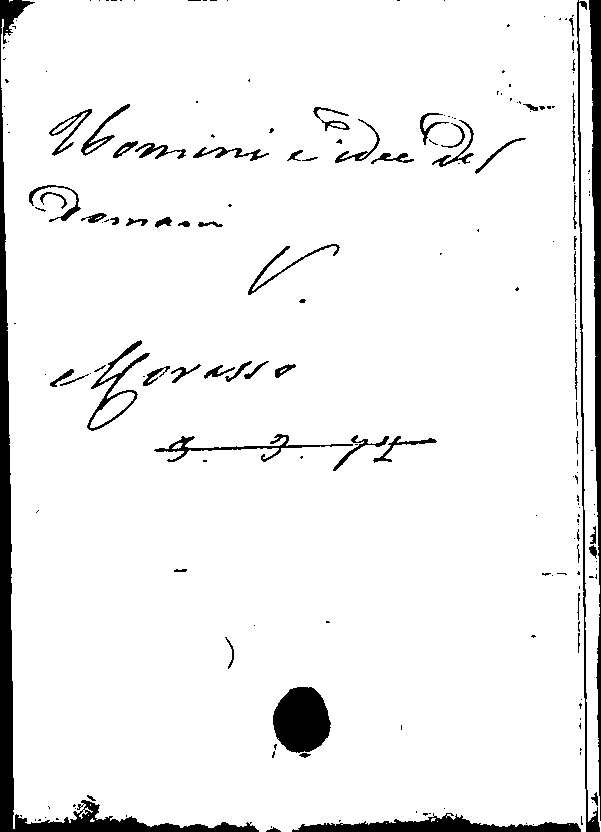 Uomini e idee del
domani
V.
Morasso
3. 3. 74